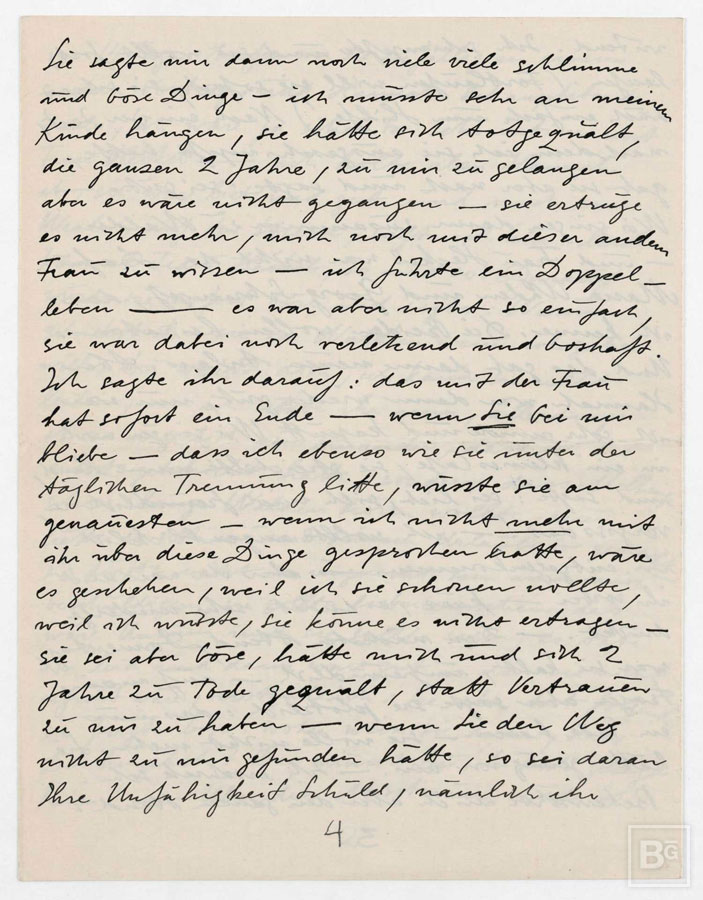 Sie sagte mir dann noch viele viele schlimme
und böse Dinge – ich müsste sehr an meinem
Kinde hängen, sie hätte sich totgequält,
die ganzen 2 Jahre, zu mir zu gelangen
aber es wäre nicht gegangen – sie ertrüge
es nicht mehr, mich noch mit dieser andern
Frau zu wissen – ich führte ein Doppel–
leben –– es war aber nicht so einfach,
sie war dabei noch verletzend und boshaft.
Ich sagte ihr darauf: das mit der Frau
hat sofort ein Ende – wenn Sie bei mir
bliebe – dass ich ebenso wie sie unter der
täglichen Trennung litte, wüsste sie am
genauesten – wenn ich nicht mehr mit
ihr über diese Dinge gesprochen hätte, wäre
es geschehen, weil ich sie schonen wollte,
weil ich wüsste, sie könne es nicht ertragen –
sie sei aber böse, hätte mich und sich 2
Jahre zu Tode gequält, statt Vertrauen
zu mir zu haben – wenn Sie den Weg
nicht zu mir gefunden hätte, so sei daran
Ihre Unfähigkeit Schuld, nämlich ihr
4
BG